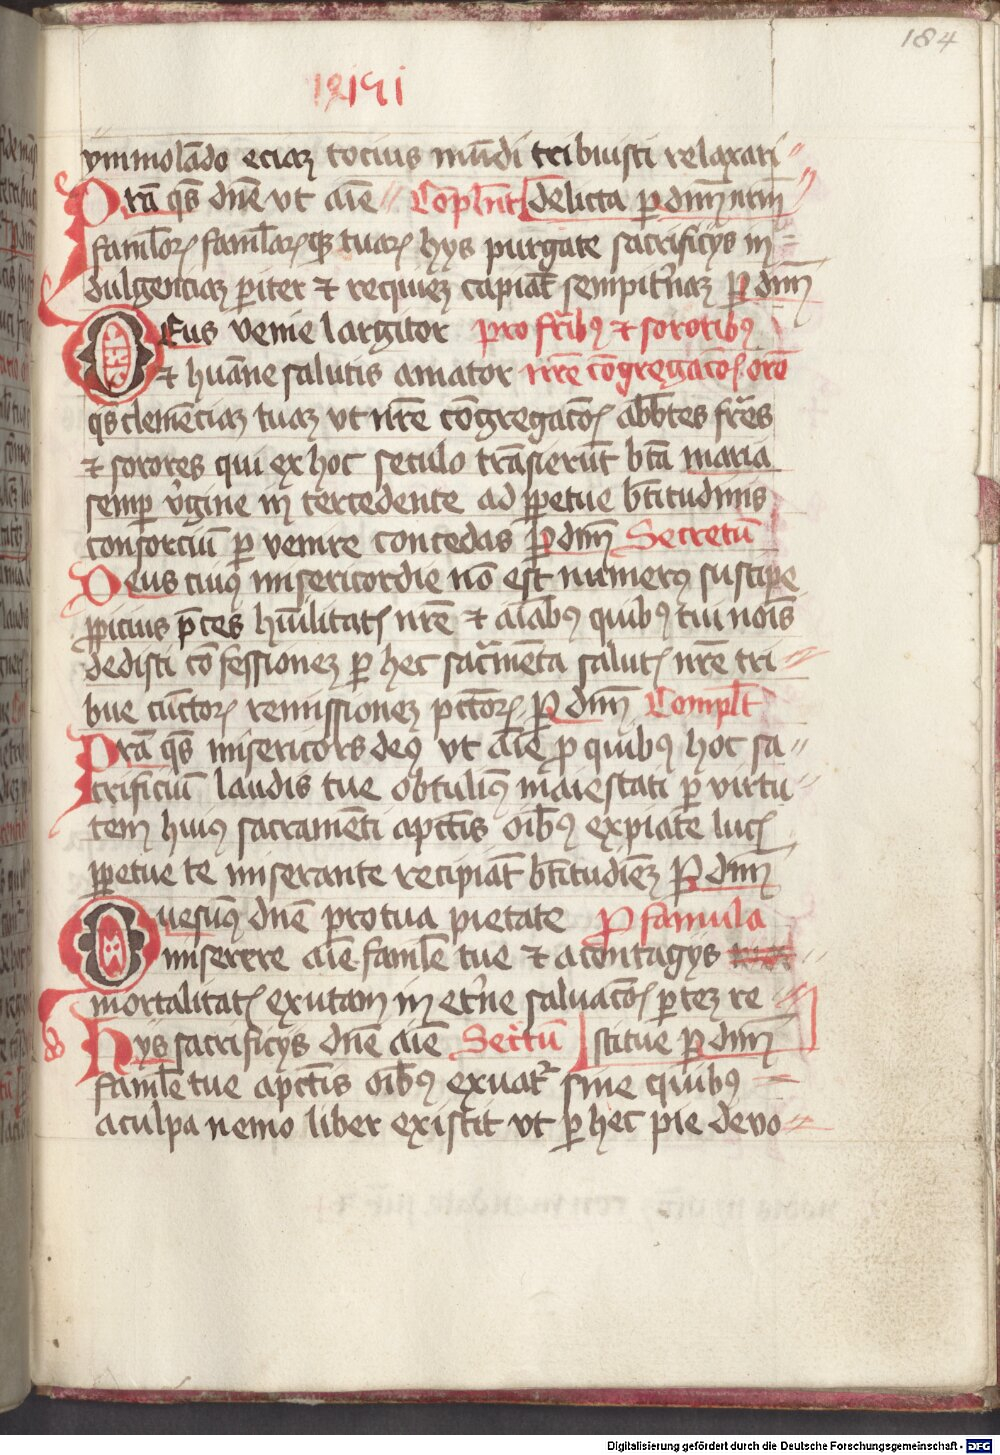 184
ymmolādo eciaꝫ tocius mūdi tribuisti relaxari
Prā qs̄ dn̄e vt aīe Cōpl̄nt delicta ꝑ dn̄m nr̄m
famloꝝ famlaꝝqꝫ tuaꝝ hys purgate sacrificys in
dulgenciaꝫ ꝑiter ⁊ requieꝫ capiāt sempit'naꝫ P dn̄m
DEus venie largitor pro fr̄ibꝰ ⁊ sororibꝰ
⁊ huāne salutis amator nr̄e cōgregacōīs orō
qs̄ clemēciaꝫ tuaꝫ vt nr̄e cōgregacōīs abb̄tes fr̄es
⁊ sorores qui ex hoc seculo trāsierūt bt̄ā maria
semꝑ v'gine in tercedente ad ꝑpetue bt̄itudinis
consorciū ꝑ venire concedas P dn̄m Secretū
Deus cuiꝰ misericordie nō est numerꝰ suscipe
ꝓpicius p̄ces hūilitatꝭ nr̄e ⁊ aīabꝰ quibꝰ tui noīs
dedisti cōfessioneꝫ ꝑ hec sacr̄amēta salutꝭ nr̄e tri
bue cūctoꝝ remissioneꝫ pctōꝝ P dn̄m Compl̄t
Prā qs̄ misericors deꝰ vt aīe ꝓ quibꝰ hoc sa
crificiū laudis tue obtulimꝰ maiestati ꝑ virtu
tem huiꝰ sacramēti a pctīs oībꝰ expiate lucꝭ
ꝑpetue te miserante recipiāt bt̄itudinēꝫ P dn̄m
Quesumꝰ dn̄e pro tua pietate P famula
miserere aīe famle tue ⁊ a contagys
mortalitatꝭ exutam in et'ne saluacōīs ꝑteꝫ re
Hys sacrificys dn̄e aīe Secr̄tū stitue P dn̄m
famle tue a pctīs oībꝰ exuat' sine quibꝰ
a culpa nemo liber existit vt ꝑ hec pie devo
Digitalisierung gefördert durch die Deutsche Forschungsgemeinschaft - DFG